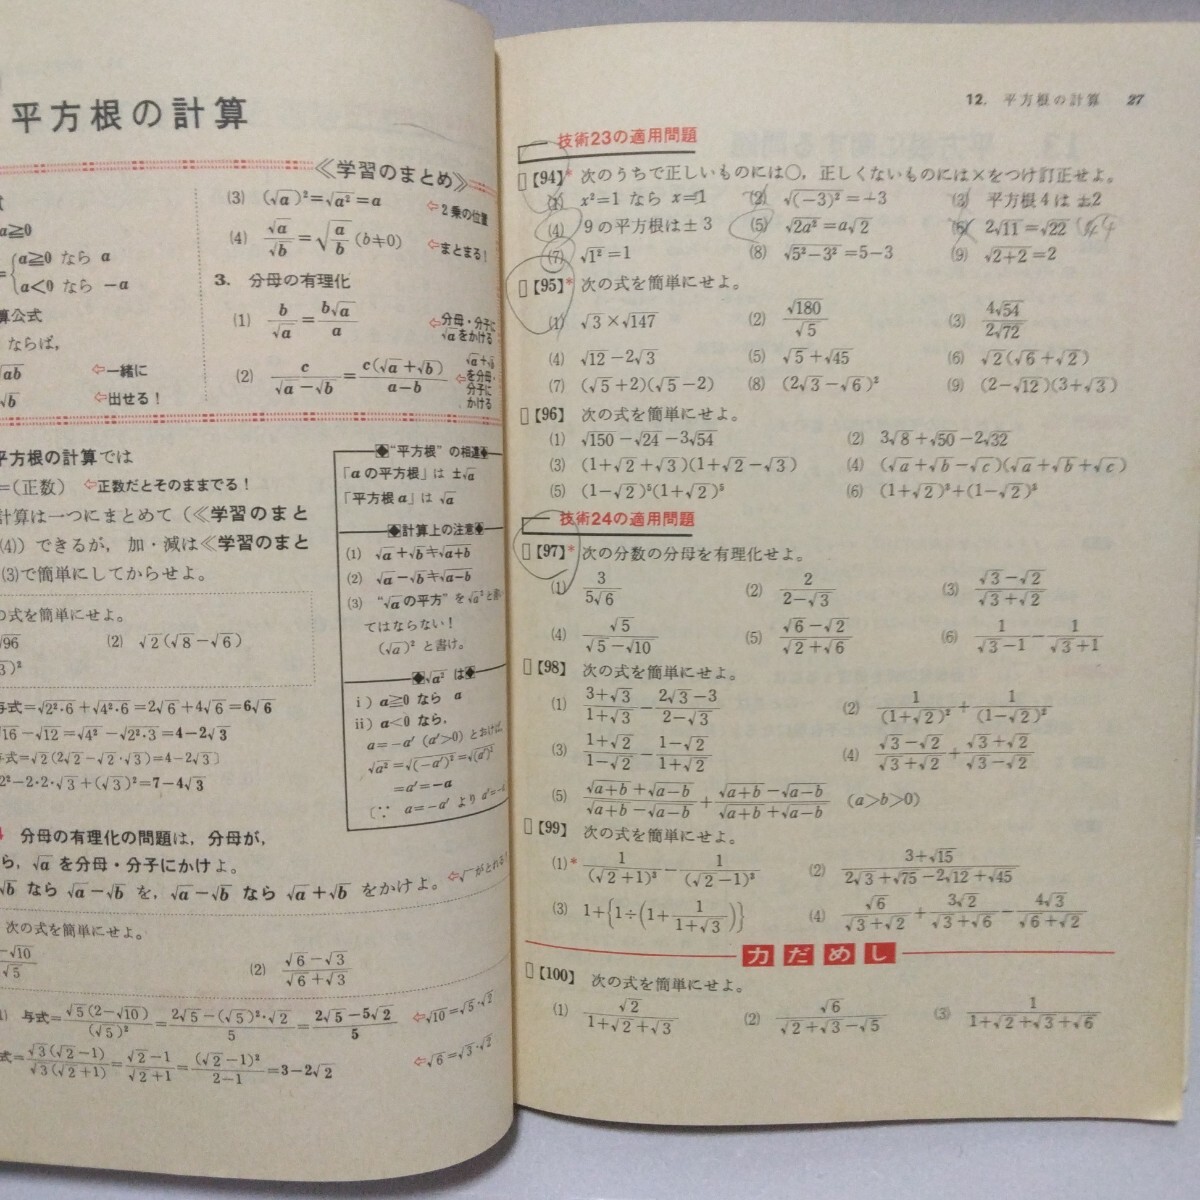 平方根の計算
≪学習のまとめ≫
a≧0
a≧0 なら a
a<0 なら −a
算公式
ならば,
√ab ⇦一緒に
√b ⇦出せる!
(3) (√a)²=√a²=a ⇦2乗の位置
(4) √a/√b=√(a/b) (b≠0) ⇦まとまる!
3. 分母の有理化
(1) b/√a=b√a/a ⇦分母・分子に√aをかける
(2) c/(√a−√b)=c(√a+√b)/(a−b) ⇦√a+√bを分母・分子にかける
平方根の計算では
=(正数) ⇦正数だとそのままでる!
計算は一つにまとめて(≪学習のまと
(4)) できるが, 加・減は≪学習のまと
(3)で簡単にしてからせよ。
の式を簡単にせよ。
√96 (2) √2(√8−√6)
3)²
与式=√2²·6+√4²·6=2√6+4√6=6√6
√16−√12=√4²−√2²·3=4−2√3
与式=√2(2√2−√2·√3)=4−2√3〕
2²−2·2·√3+(√3)²=7−4√3
◆“平方根”の相違◆
「aの平方根」は ±√a
「平方根a」は √a
◆計算上の注意◆
(1) √a+√b≠√a+b
(2) √a−√b≠√a−b
(3) “√aの平方”を√a²と書い
てはならない!
(√a)² と書け。
◆√a² は◆
i) a≧0 なら a
ii) a<0 なら,
a=−a′ (a′>0) とおけば,
√a²=√(−a′)²=√(a′)²
=a′=−a
(∵ a=−a′ より a′=−a
4 分母の有理化の問題は, 分母が,
なら, √a を分母・分子にかけよ。
√b なら √a−√b を, √a−√b なら √a+√b をかけよ。 ⇦√ がとれる!
次の式を簡単にせよ。
−√10/√5 (2) (√6−√3)/(√6+√3)
1) 与式=√5(2−√10)/(√5)²=(2√5−(√5)²·√2)/5=(2√5−5√2)/5 ⇦√10=√5·√2
式=√3(√2−1)/√3(√2+1)=(√2−1)/(√2+1)=(√2−1)²/(2−1)=3−2√2 ⇦√6=√3·√2
12. 平方根の計算 27
技術23の適用問題
【94】* 次のうちで正しいものには○, 正しくないものには×をつけ訂正せよ。
(1) x²=1 なら x=1 (2) √(−3)²=+3 (3) 平方根4は ±2
(4) 9の平方根は±3 (5) √2a²=a√2 (6) 2√11=√22
(7) √1²=1 (8) √5²−3²=5−3 (9) √2+2=2
【95】* 次の式を簡単にせよ。
(1) √3×√147 (2) √180/√5 (3) 4√54/2√72
(4) √12−2√3 (5) √5+√45 (6) √2(√6+√2)
(7) (√5+2)(√5−2) (8) (2√3−√6)² (9) (2−√12)(3+√3)
【96】 次の式を簡単にせよ。
(1) √150−√24−3√54 (2) 3√8+√50−2√32
(3) (1+√2+√3)(1+√2−√3) (4) (√a+√b−√c)(√a+√b+√c)
(5) (1−√2)⁵(1+√2)⁵ (6) (1+√2)³+(1−√2)³
技術24の適用問題
【97】* 次の分数の分母を有理化せよ。
(1) 3/5√6 (2) 2/(2−√3) (3) (√3−√2)/(√3+√2)
(4) √5/(√5−√10) (5) (√6−√2)/(√2+√6) (6) 1/(√3−1)−1/(√3+1)
【98】 次の式を簡単にせよ。
(1) (3+√3)/(1+√3)−(2√3−3)/(2−√3) (2) 1/(1+√2)²+1/(1−√2)²
(3) (1+√2)/(1−√2)−(1−√2)/(1+√2) (4) (√3−√2)/(√3+√2)+(√3+√2)/(√3−√2)
(5) (√a+b+√a−b)/(√a+b−√a−b)+(√a+b−√a−b)/(√a+b+√a−b) (a>b>0)
【99】 次の式を簡単にせよ。
(1)* 1/(√2+1)³−1/(√2−1)³ (2) (3+√15)/(2√3+√75−2√12+√45)
(3) 1+{1÷(1+1/(1+√3))} (4) √6/(√3+√2)+3√2/(√3+√6)−4√3/(√6+√2)
力だめし
【100】 次の式を簡単にせよ。
(1) √2/(1+√2+√3) (2) √6/(√2+√3−√5) (3) 1/(1+√2+√3+√6)